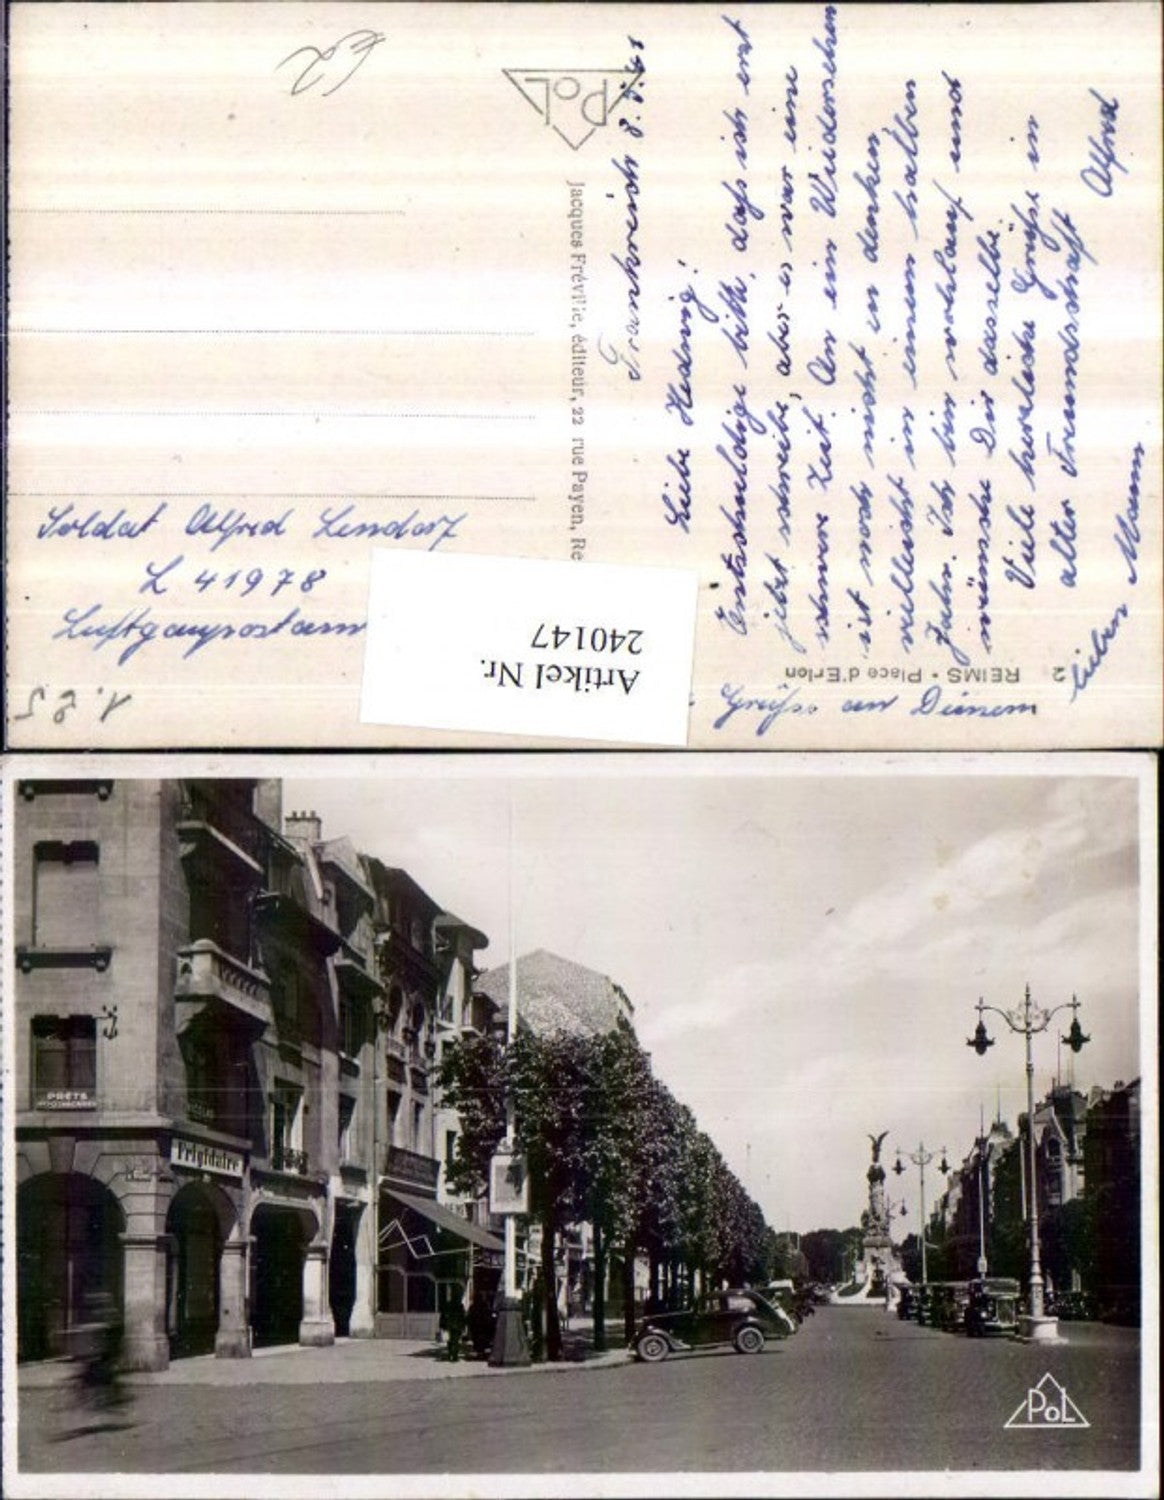 Frankreich 8.5.41
Liebe Hedwig!
Entschuldige bitte, dass ich erst
jetzt schreibe, aber es war eine
schwere Zeit. An ein Wiedersehen
ist noch nicht zu denken
vielleicht in einem halben
Jahr. Ich bin wohlauf und
wünsche Dir dasselbe.
Viele herzliche Grüße in
alter Freundschaft
Alfred
Grüsse an Deinem
lieben Mann
Soldat Alfred Lendorf
L 41978
Luftgaupostamt
Jacques Fréville, éditeur, 22 rue Payen, Re
POL
2 REIMS • Place d'Erlon
Artikel Nr.
240147
PRÊTS
Frigidaire
POL